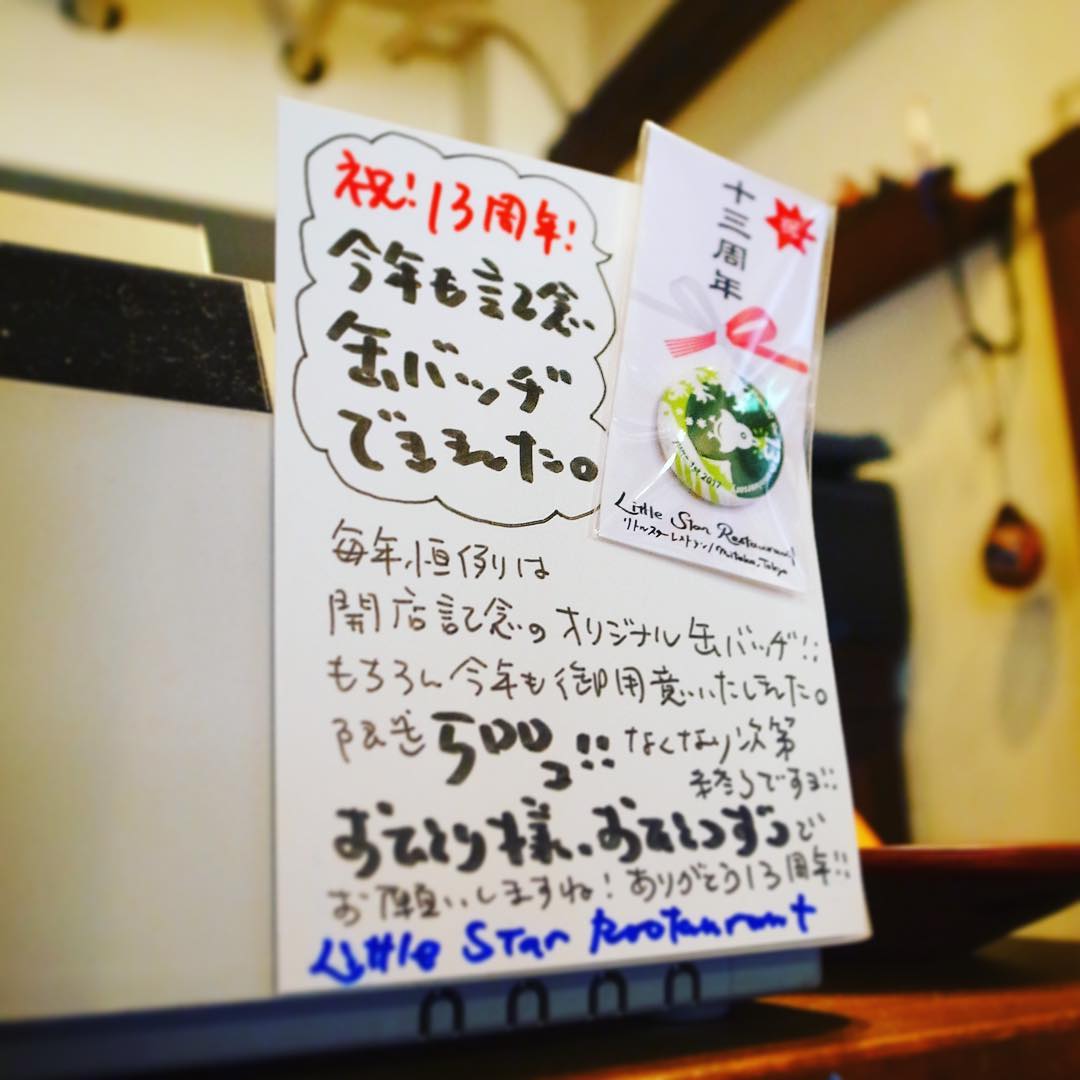 祝!13周年!
今年も記念
缶バッヂ
できました。
毎年恒例は
開店記念のオリジナル缶バッヂ!!
もちろん今年も御用意いたしました。
限定500コ!!なくなり次第
終了ですヨ!!
おひとり様、おひとつずつで
お願いしますね!ありがとう13周年!!
Little Star Restaurant
祝
十三周年
2017
Little Star Restaurant
リトルスターレストラン/Mitaka, Tokyo